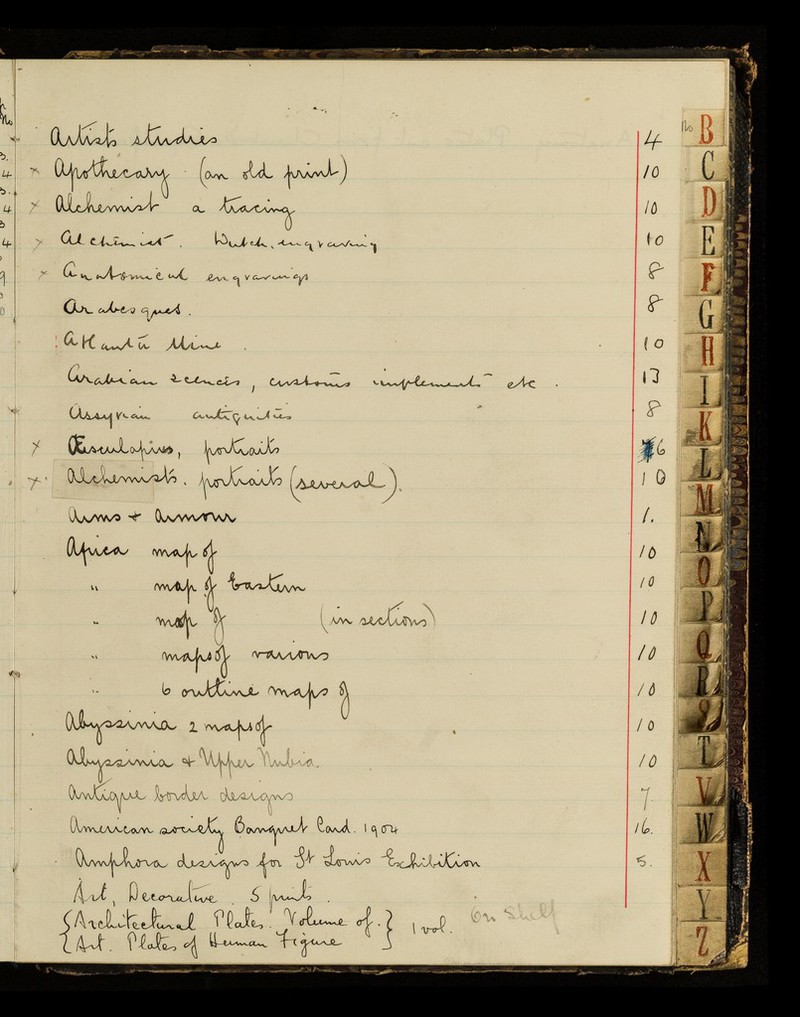 No
Artists studies 4
× Apothecary (an old print) 10
× Alchemist a tracing 10
× Alchemist. Dutch, engraving 10
× Anatomical engravings 8
Arabesques. 8
Atlanta Mine 10
Arabian scences, customs implements etc. 13
Assyrian antiquities 8
× Œsculapius, portraits 6
× Alchemists. portraits (several). 10
Arms + Armour 1.
Africa map of 10
" map of Eastern 10
" map of (in sections) 10
" maps of various 10
" 6 outline maps of 10
Abyssinia 2 maps of 10
Abyssinia + Upper Nubia. 10
Antique border designs 7
American society Banquet Card. 1904 16.
Amphora designs for St Louis Exhibition 5.
Art, Decorative. 5 prints.
Architectural Plates. Volume of. 1 vol. On Shelf
Art. Plates of Human Figure
B
C
D
E
F
G
H
I
K
L
M
N
O
P
Q
R
S
T
V
W
X
Y
Z